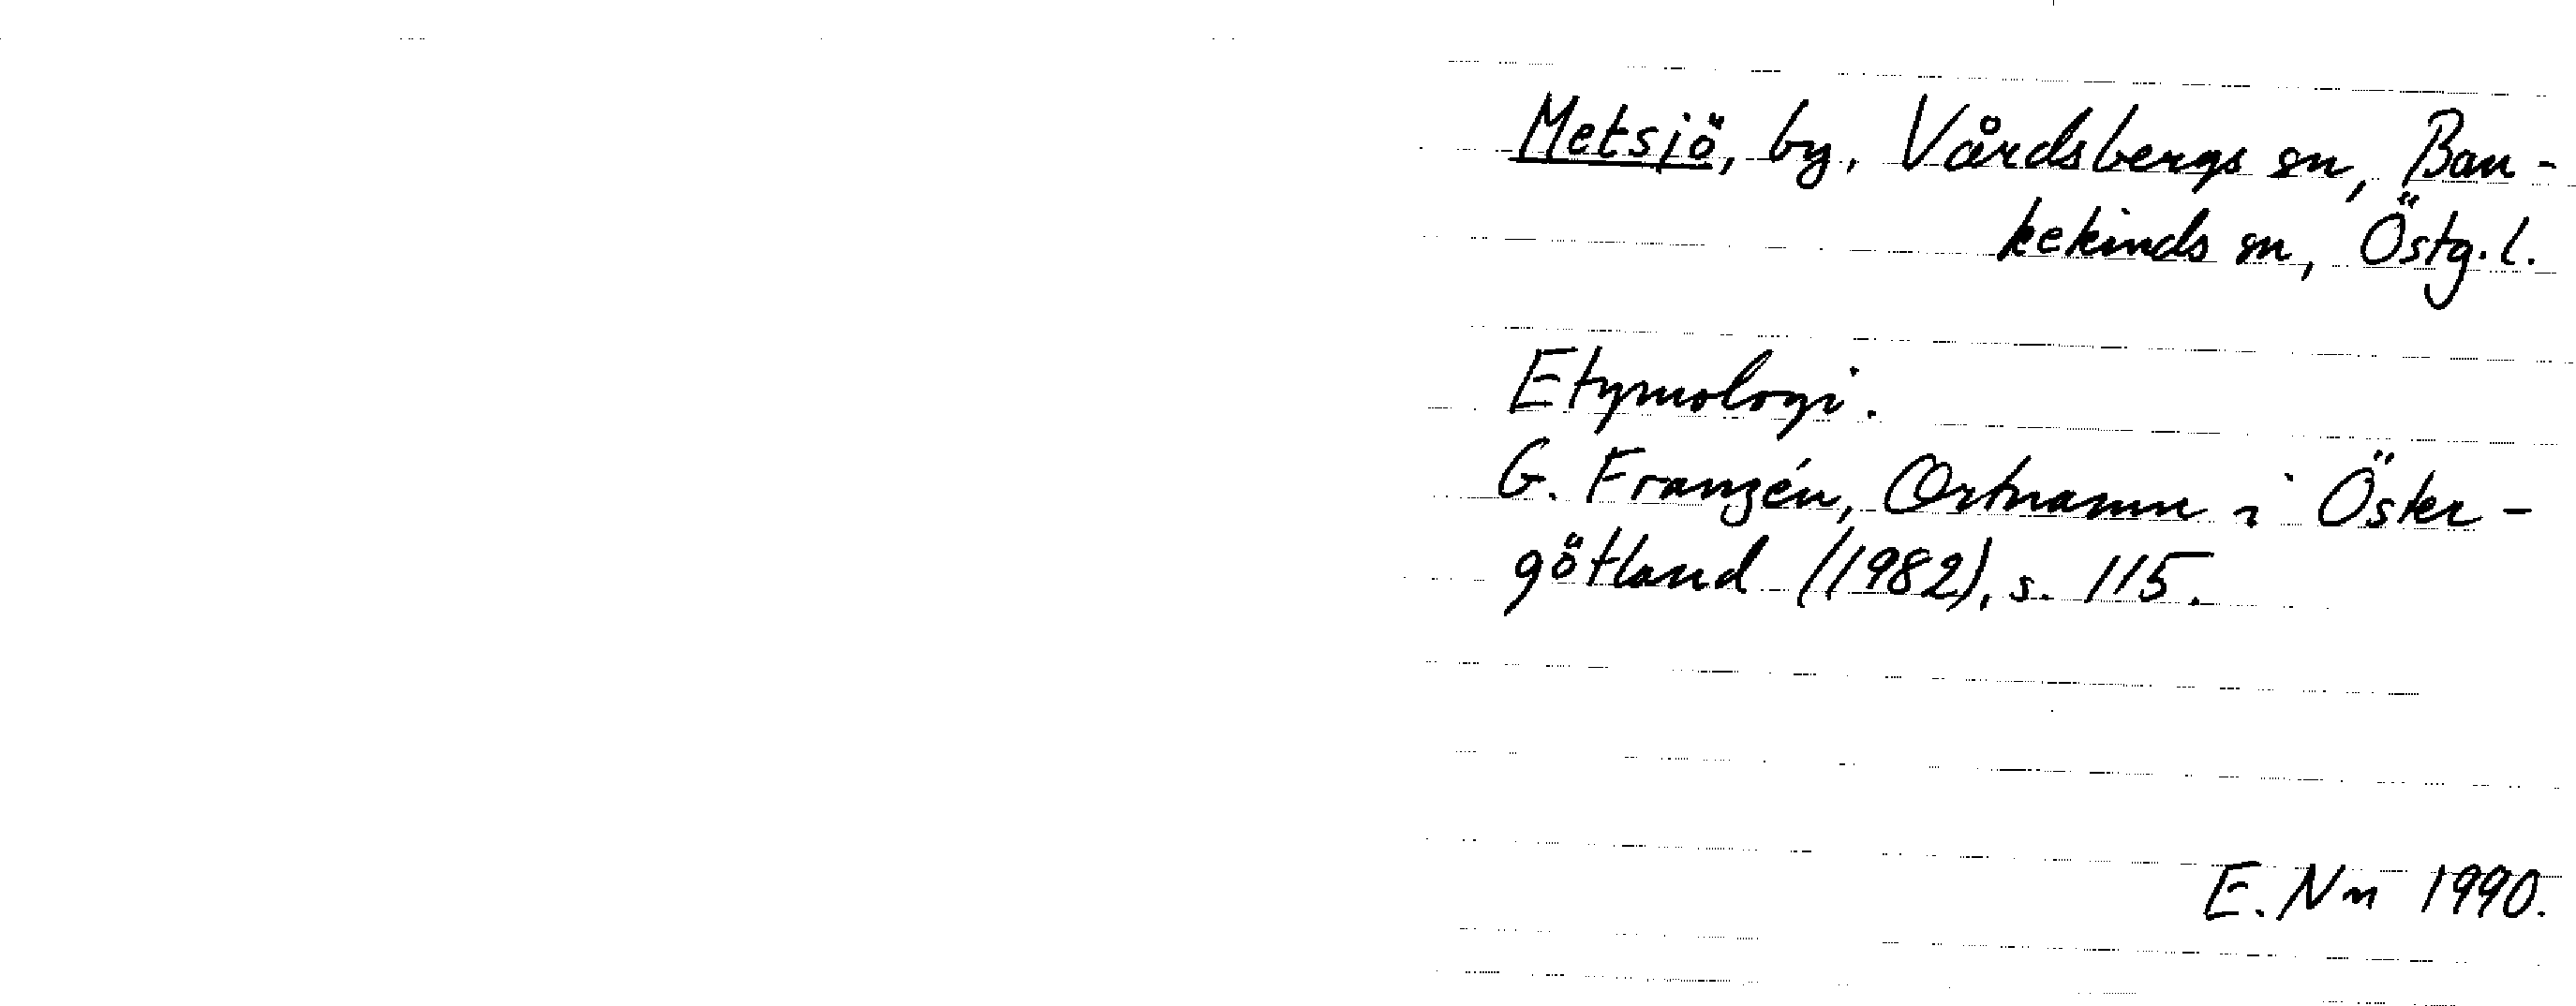 Metsjö, by, Vårdsbergs sn, Ban-
kekinds sn, Östg.l.
Etymologi.
G. Franzén, Ortnamn i Öster-
götland (1982), s. 115.
E. Nn 1990.